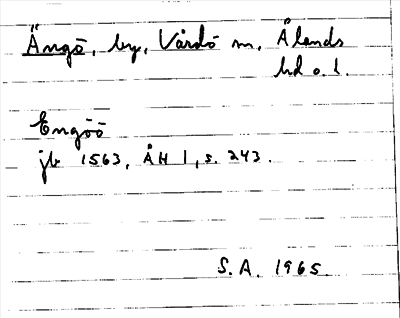 Ängö, by, Vårdö sn, Ålands
hd o. l.
Engöö
jb 1563, ÅH 1, s. 243.
S.A. 1965.